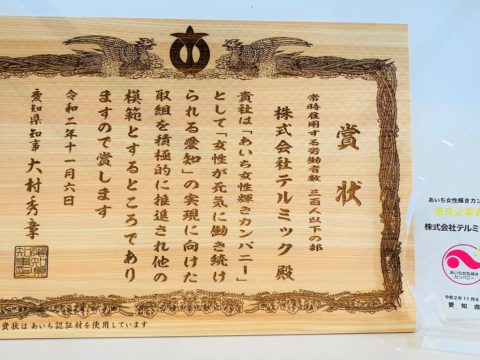 賞状
常時雇用する労働者数 三百人以下の部
株式会社テルミック 殿
貴社は「あいち女性輝きカンパニー」
として「女性が元気に働き続け
られる愛知」の実現に向けた
取組を積極的に推進され他の
模範とするところであり
ますので賞します
令和二年十一月六日
愛知県知事 大村秀章
賞状は あいち認証材を使用しています
あいち女性輝きカン
優良企業表
株式会社テルミ
あいち女性輝き
カンパニー
令和2年11月6
愛知県